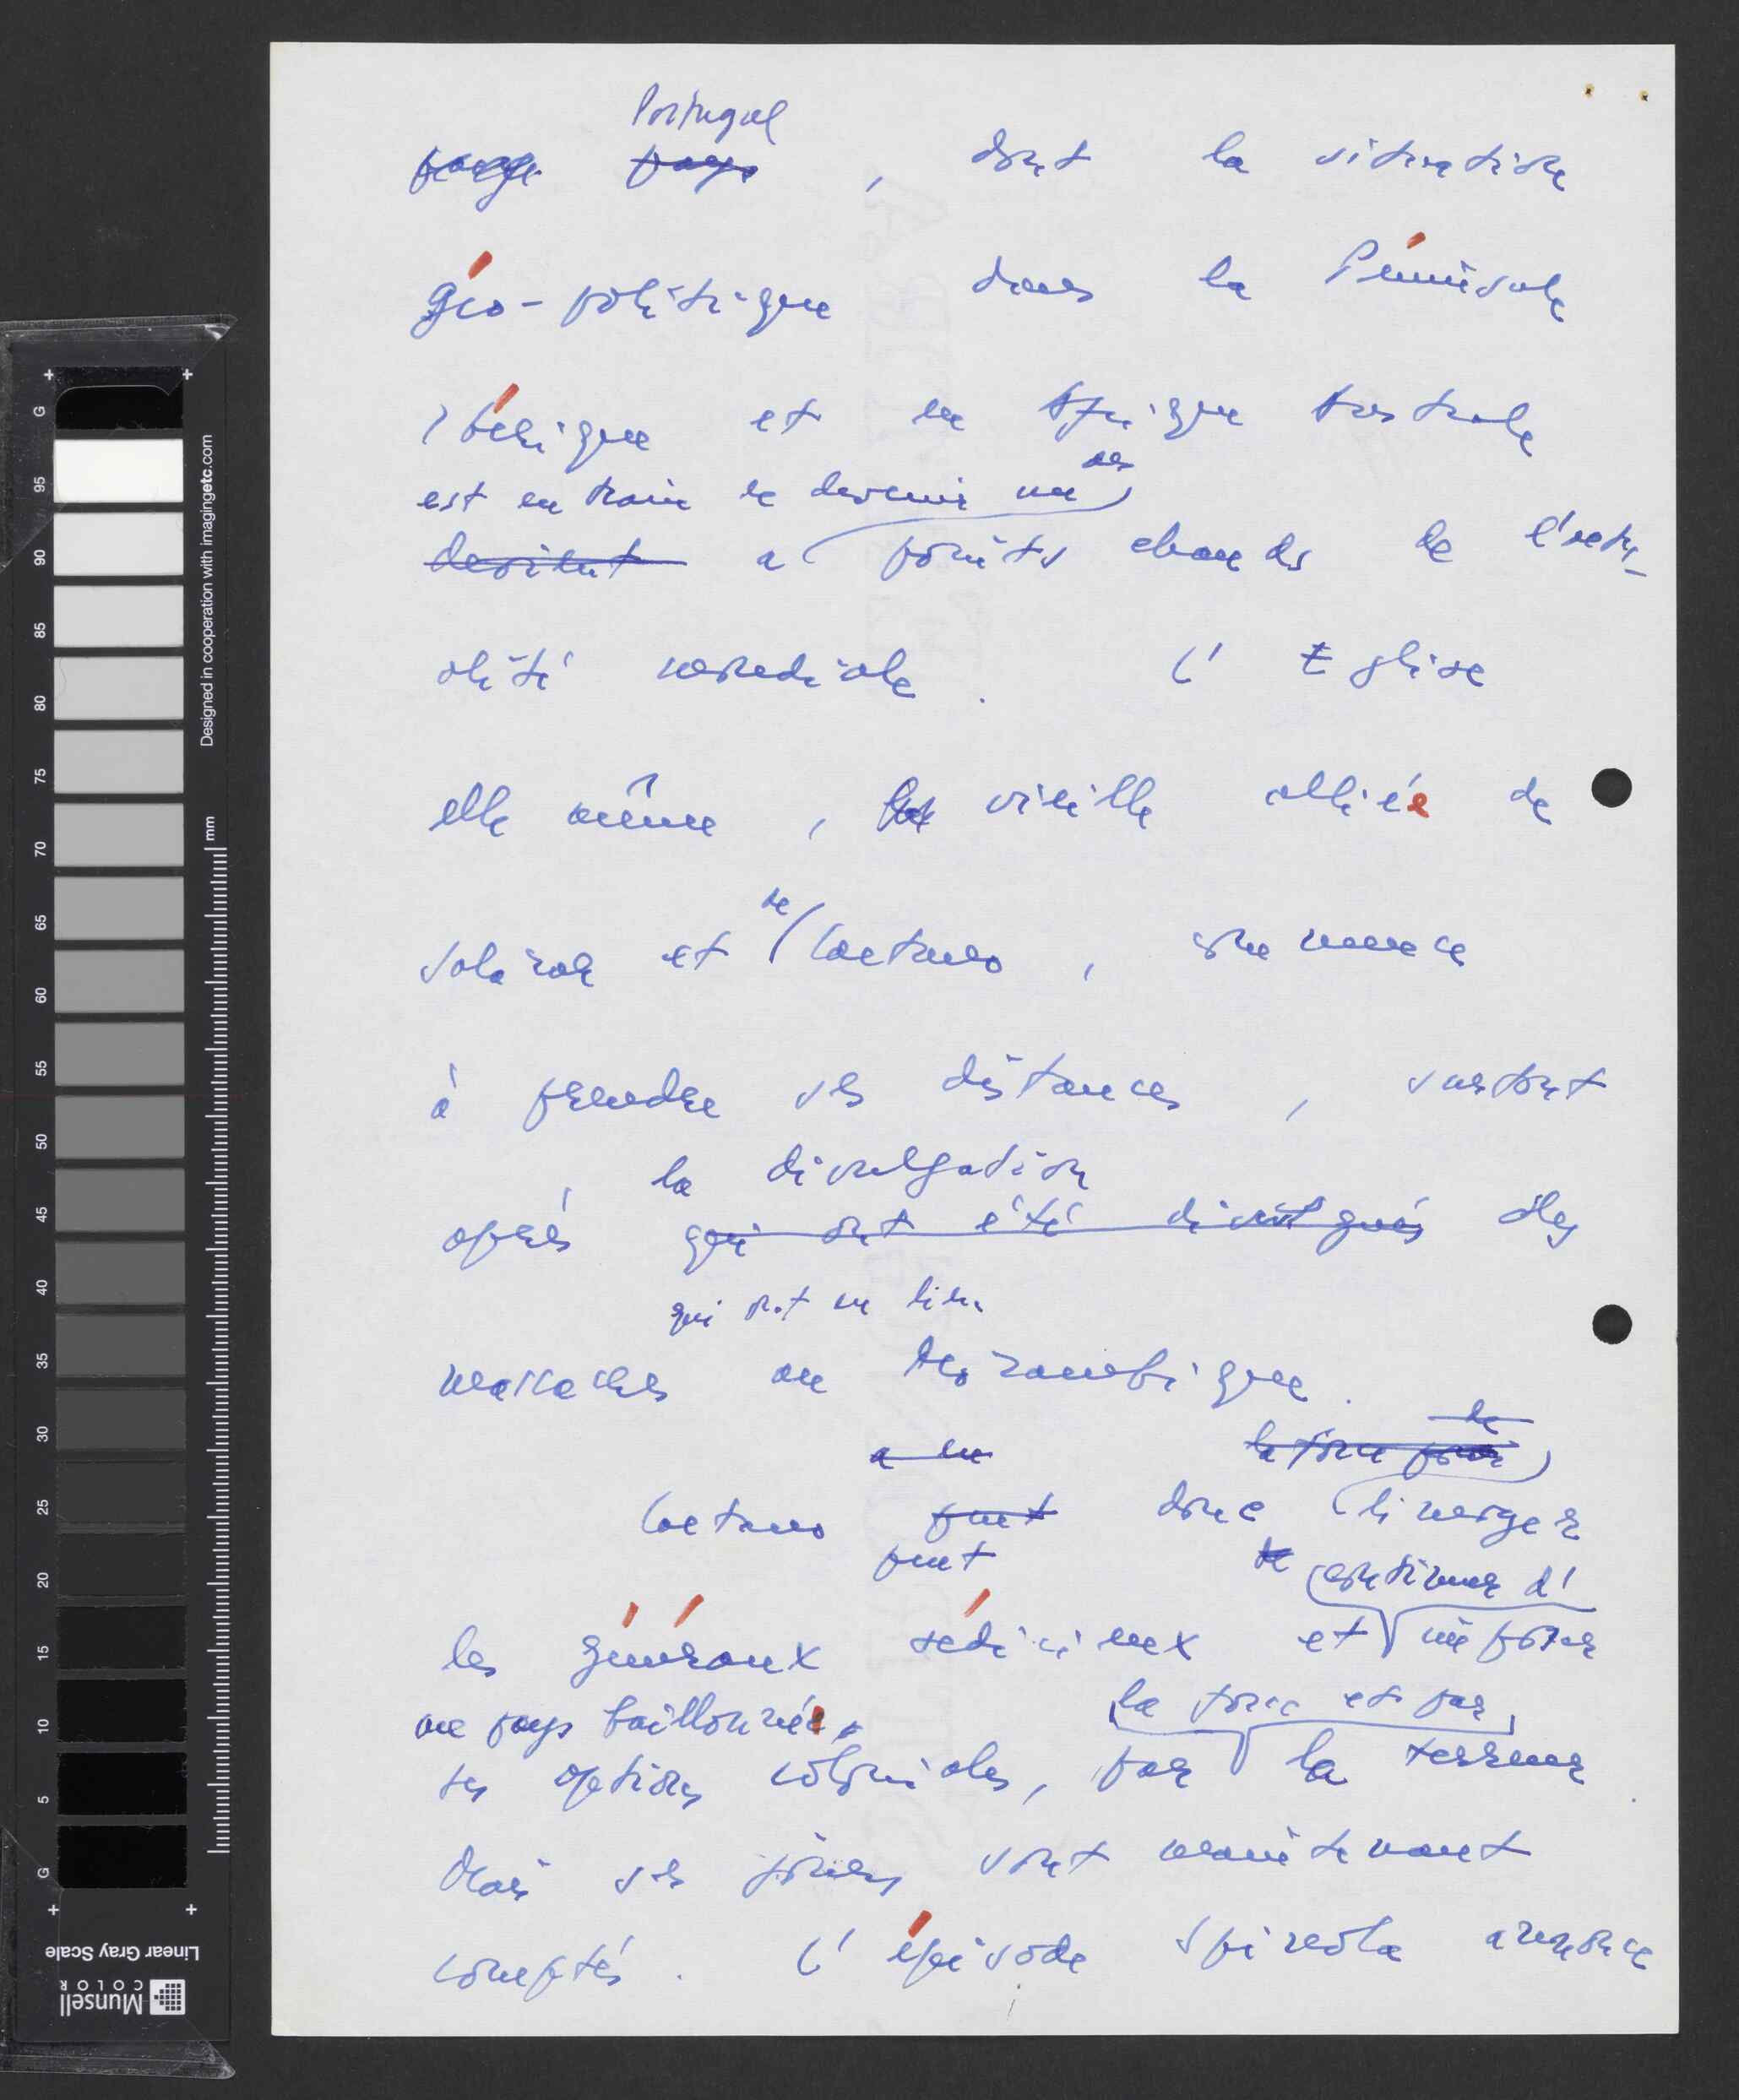 Portugal
pays pays , dont la situation
géo-politique dans la Péninsule
Ibérique et en Afrique Australe
des
est en train de devenir un
devient a points chauds de l'actu-
alité mondiale . L'Eglise
elle même , vieille alliée de
de
Salazar et Caetano , commence
à prendre ses distances , surtout
la divulgation
après qui ont été divulgués des
qui ont eu lieu
massacres au Mozambique .
de
a eu la force pour
Caetano peut donc limoger
peut continuer d'
les généraux séditieux et imposer
au pays baillonné, la force et par
ses options coloniales, par la terreur .
Mais ses jours sont maintenant
comptés . L'épisode Spinola annonce
Designed in cooperation with imagingetc.com
mm
G 95 90 85 80 75 70 65 60 55 50 45 40 35 30 25 20 15 10 5 G
Linear Gray Scale
Munsell
COLOR